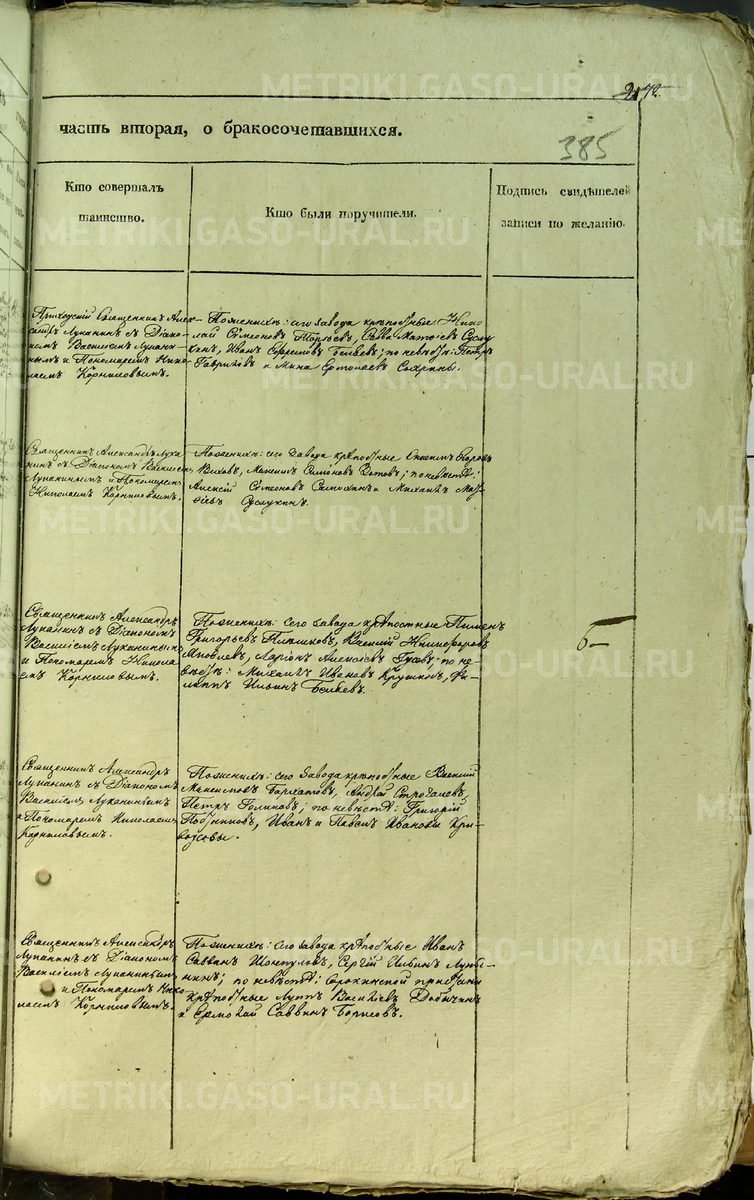 72.
385
часть вторая, о бракосочетавшихся.
Кто совершалъ
таинство.
Кто были поручители.
Подпись свидѣтелей
записи по желанію.
Приходскій Священникъ Алек-
сандръ Луканинъ съ Діако-
номъ Василіемъ Лукани-
нымъ и Пономаремъ Нико-
лаемъ Корниловымъ.
По женихѣ: сего завода крѣпостные Нико-
лай Симеоновъ Савва Матѳеевъ
Иванъ по невѣстѣ: Петръ
Гавриловъ и Мина Ермолаевъ
Священникъ Александръ Лука
нинъ съ Діакономъ Василіемъ
Луканинымъ и Пономаремъ
Николаемъ Корниловымъ.
По женихѣ: сего завода крѣпостные
Максимъ Симеоновъ по невѣстѣ:
Алексій Симеоновъ и Михаилъ Мат-
ѳеевъ
Священникъ Александръ
Луканинъ съ Діакономъ
Василіемъ Луканинымъ
и Пономаремъ Никола-
емъ Корниловымъ.
По женихѣ: сего завода крѣпостные Пименъ
Григорьевъ Василій Никифоровъ
Яковлевъ, Ларіонъ Алексѣевъ Гусевъ; по не-
вѣстѣ: Михаилъ Ивановъ Фи-
липпъ Ильинъ
Б–
Священникъ Александръ
Луканинъ съ Діакономъ
Василіемъ Луканинымъ
и Пономаремъ Николаемъ
Корниловымъ.
По женихѣ: сего завода крѣпостные Василій
Максимовъ Бархатовъ, Андрей Строгаловъ,
Петръ Голиковъ; по невѣстѣ: Григорій
Постниковъ, Иванъ и Павелъ Ивановы
Священникъ Александръ
Луканинъ съ Діакономъ
Василіемъ Луканинымъ
и Пономаремъ Нико-
лаемъ Корниловымъ.
По женихѣ: сего завода крѣпостные Иванъ
Саввинъ Сергій Ильинъ
по невѣстѣ:
крѣпостные Василіевъ
и Ермолай Саввинъ Борисовъ.
METRIKI.GASO-URAL.RU